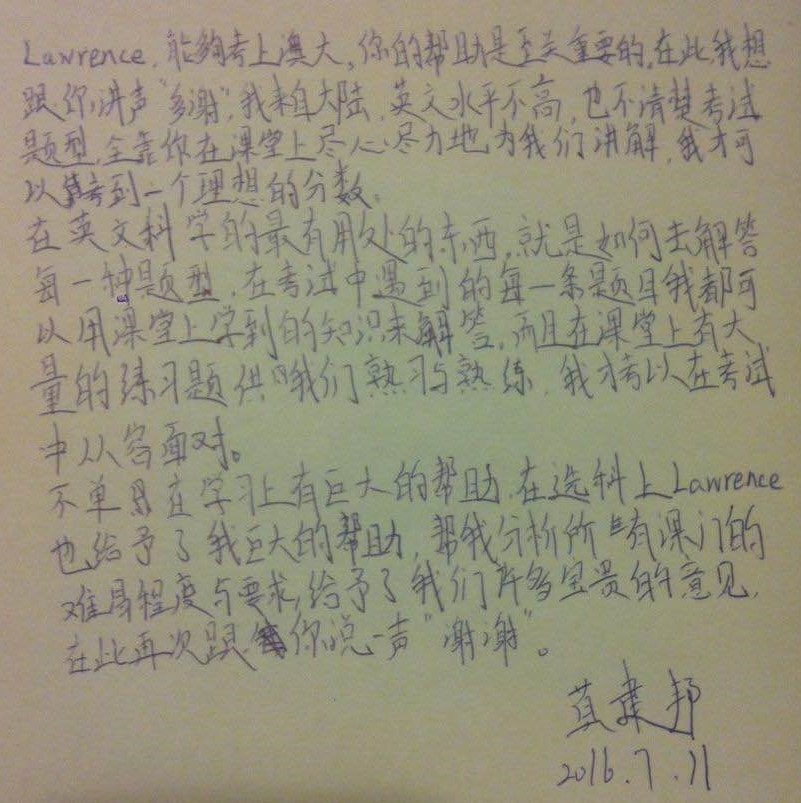 Lawrence, 能夠考上澳大,你的帮助是至关重要的,在此,我想
跟你讲声"多谢",我来自大陆,英文水平不高,也不清楚考试
题型,全靠你在课堂上尽心尽力地为我们讲解,我才可
以考到一个理想的分数。
在英文科学的最有用处的东西,就是如何去解答
每一种题型,在考试中遇到的每一条题目我都可
以用课堂上学到的知识来解答,而且在课堂上有大
量的练习题供我们熟习与熟练,我才可以在考试
中从容面对。
不单只在学习上有巨大的帮助,在选科上Lawrence
也给予了我巨大的帮助,帮我分析所有课门的
难易程度与要求,给予了我们许多宝贵的意见,
在此再次跟你说一声"谢谢"。
建邦
2016.7.11